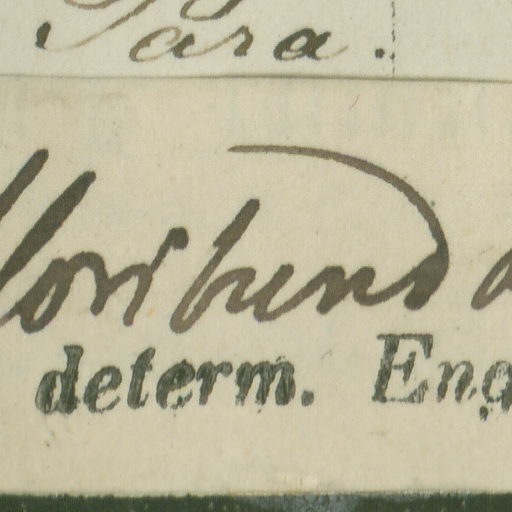 Para.
floribunda
determ. Eng